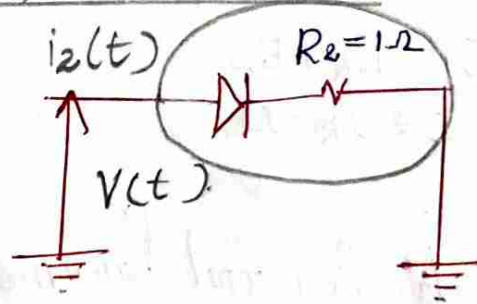 i₂(t)
R₂=1Ω
V(t).